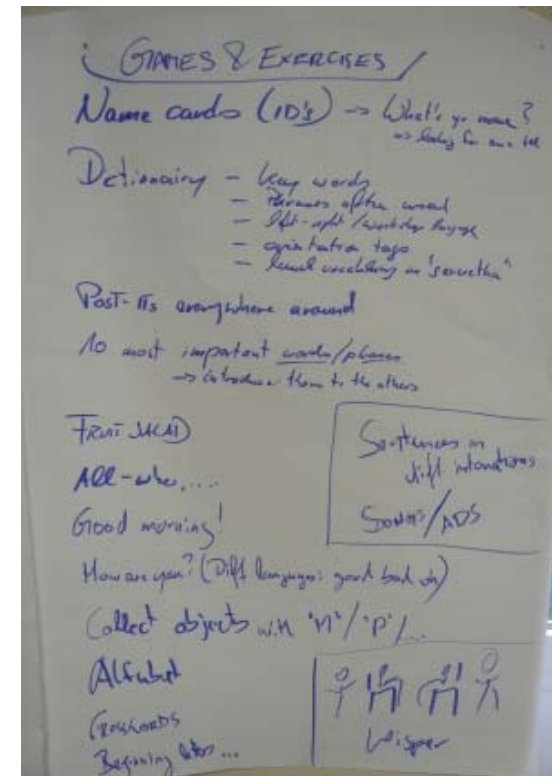 GAMES & EXERCISES
Name cards (ID's) → What's yr name?
⇒ looking for
Dictionairy - key words
- Phrases often used
- left-right / workshop language
- orientation tags
- vocabulary
Post-ITs everywhere around
10 most important words/phrases
→ introduce them to the others
FRUIT SALAD
All-who,....
Good morning!
How are you? (Diff languages: good bad ok)
Collect objects with "M"/"P"/...
Alfabet
CROSSWORDS
Beginning letter...
Sentences in
diff intonations
SONGS/ADS
Whisper